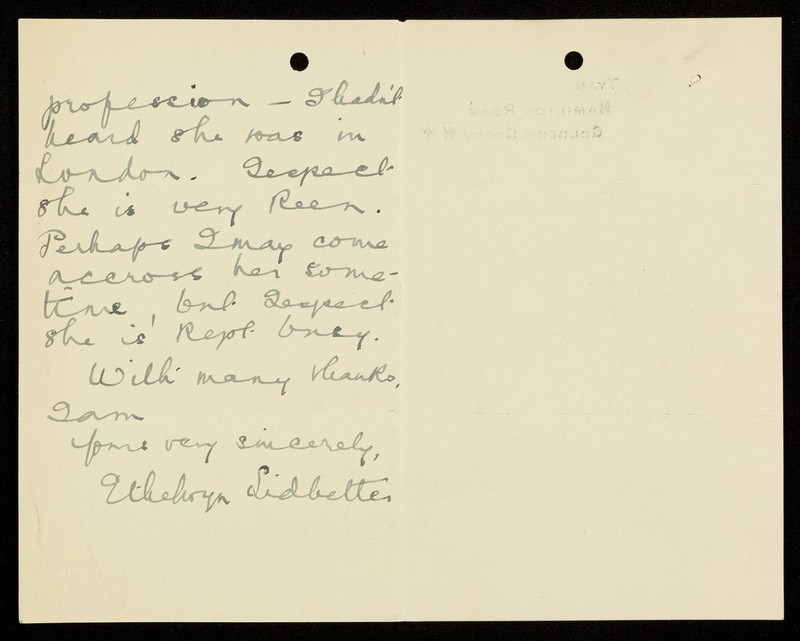 profession – I hadn't
heard she was in
London. I expect
she is very keen.
Perhaps I may come
accross her some-
time, but I expect
she is kept busy.
With many thanks,
I am
yours very sincerely,
Ethelwyn Lidbetter
HAMILTON ROAD
GOLDERS GREEN